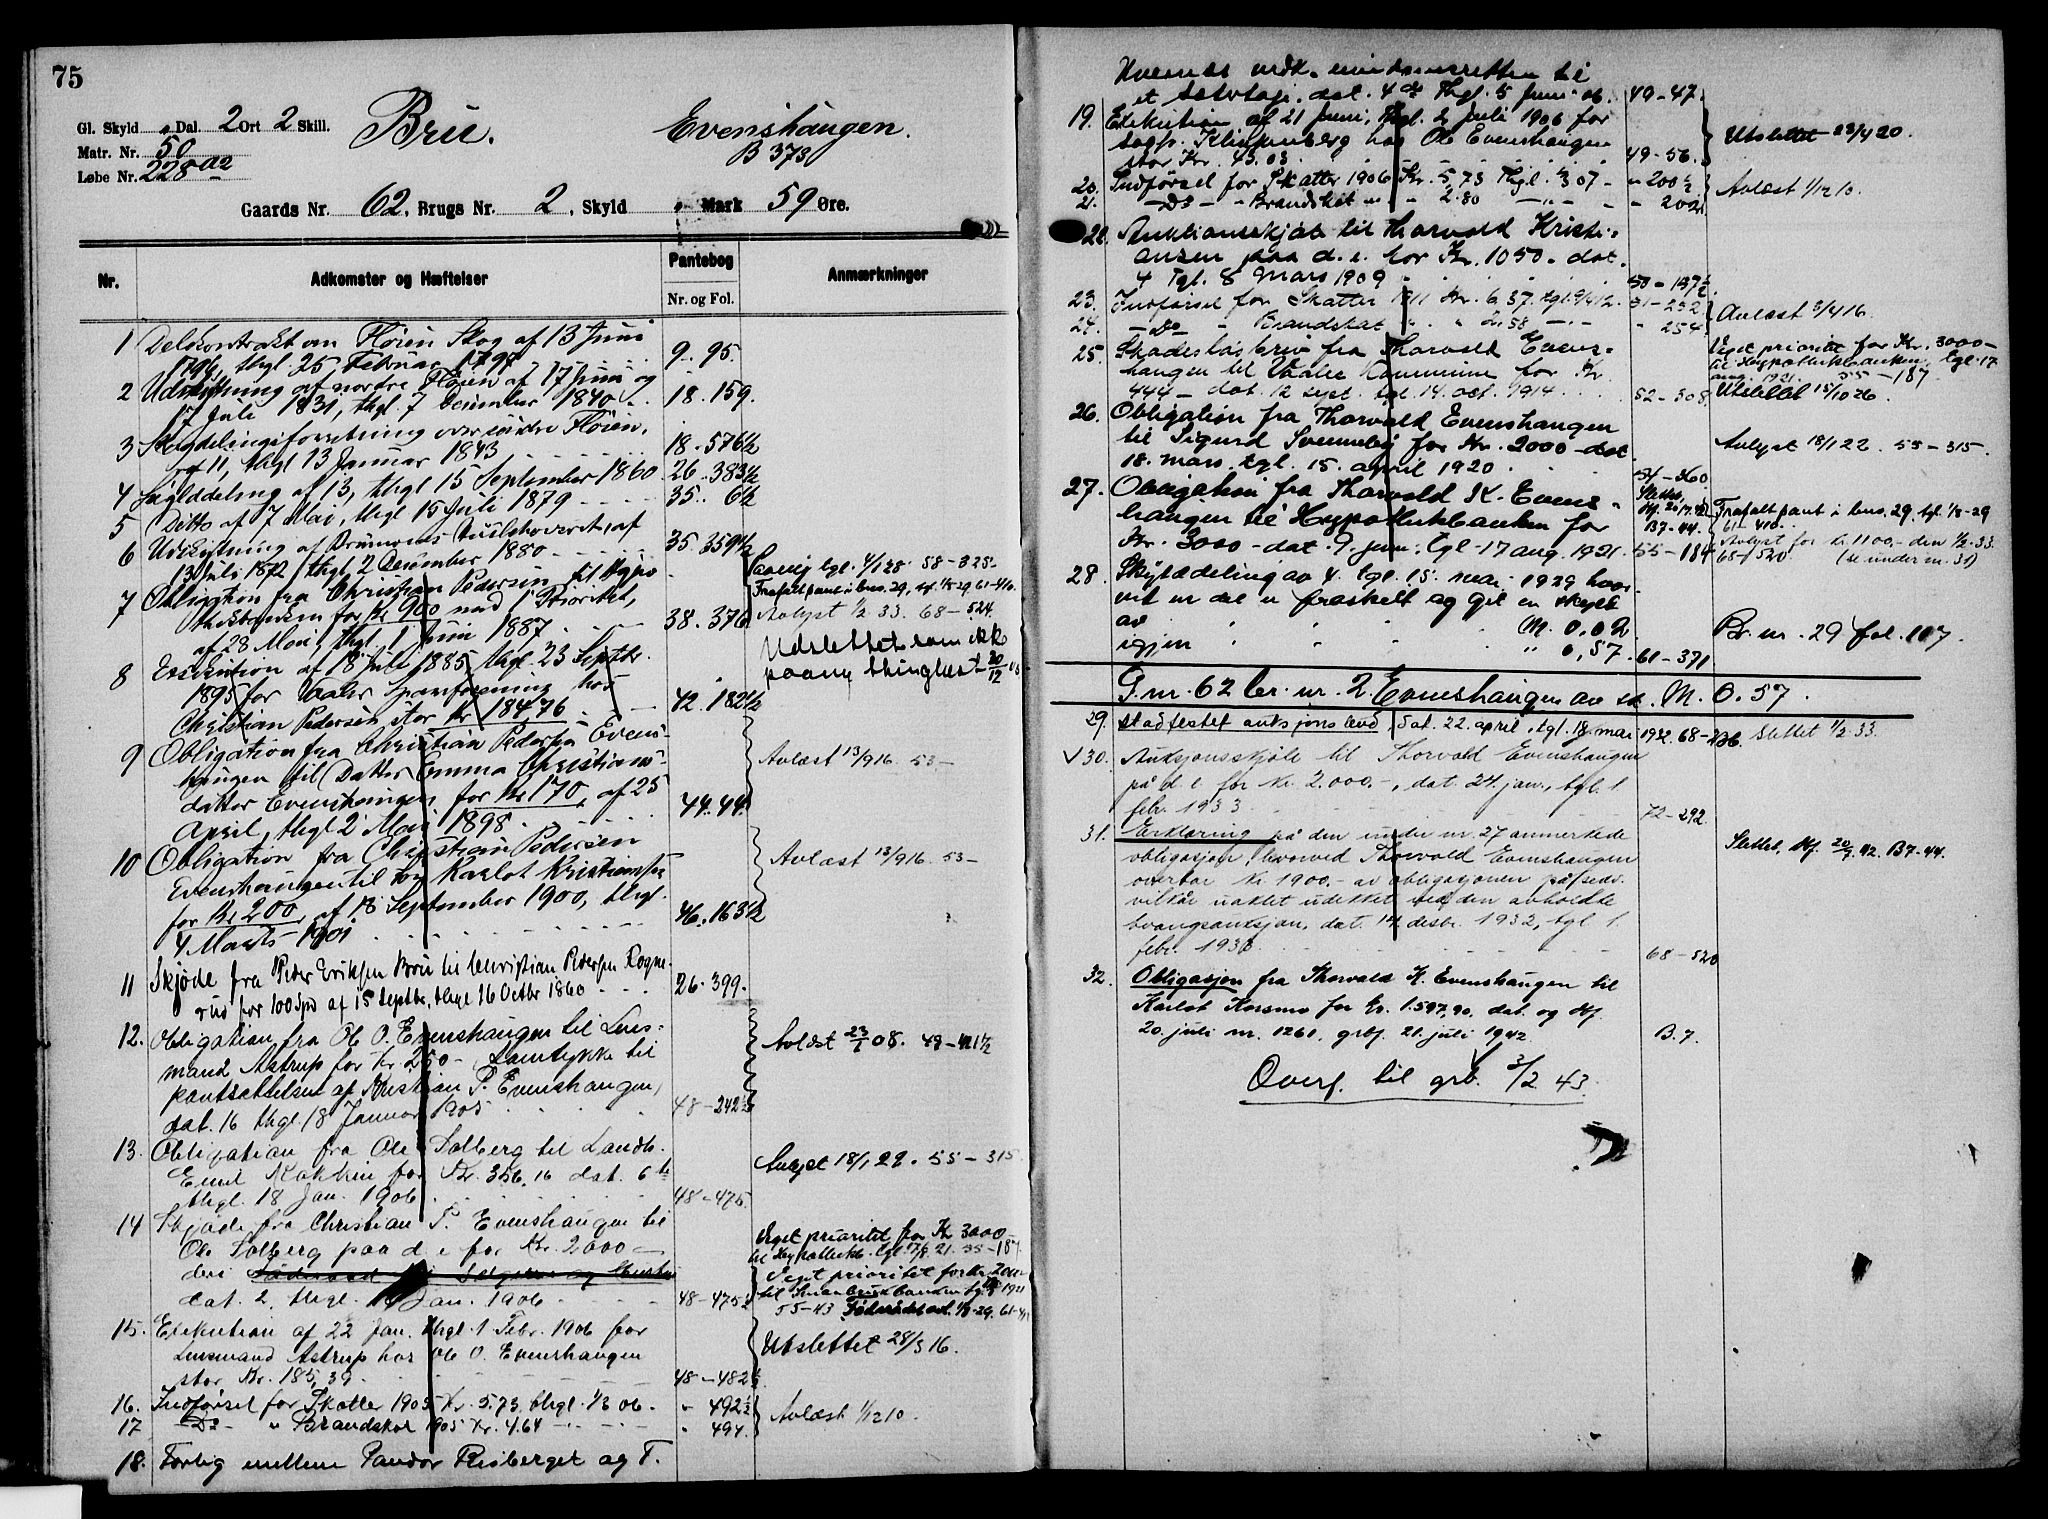 75
Gl. Skyld " Dal. 2 Ort 2 Skill.
Matr. Nr. 50
Løbe Nr. 228 a2
Bru. Evenshaugen.
B 373
Gaards Nr. 62, Brugs Nr. 2, Skyld " Mark 59 Øre.
Nr. Adkomster og Hæftelser Pantebog Anmærkninger
Nr. og Fol.
1 Delekontrakt om Fløien Skog af 13 Juni
1796, thgl. 25 Februar 1797 9. 95.
2 Udskiftning af nordre Fløien af 17 Juni og
17 Juli 1831, thgl. 7 December 1840 18. 159.
3 Skogdelingsforretning over søndre Fløien,
af 11, thgl 13 Januar 1843 18. 576½
4 Skylddeling af 13, thgl 15 September 1860 26. 383½
5 Ditto af 7 Mai, thgl 15 Juli 1879 35. 6½
6 Udskiftning af
13 Juli 1872 thgl 2 December 1880 35. 359½
7 Obligation fra Christian Pedersen til Hypo
thekbanken for Kr 900 med 1 Prioritet,
af 28 Mai, thgl. 1 Juni 1887 38. 376
Paavig tgl. 4/1 28 58-325
Frafalt pant i bns. 29, tgl. 1/8-29 61-410.
Avlyst 1/2 33. 68-524.
8 Exekution af 18 Juli 1885, thgl 23 Septbr.
1895 for Vaaler Sparforening hos
Christian Pedersen stor Kr 184,76 42. 182½
Udslettet som ikke
paany thinglæst 20/12 05
9 Obligation fra Christian Pedersen Evens-
haugen til Datter Emma Christians-
datter Evenshaugen for Kr 170, af 25
April, thgl 2 Mai 1898 44. 44.
Avlæst 13/9 16. 53-
10 Obligation fra Christian Pedersen
Evenshaugen til Karlot Kristiansen
for Kr 200 af 18 September 1900, thgl.
4 Marts 1901 46. 163½
Avlæst 13/9 16. 53-
11 Skjøde fra Peder Eriksen Bru til Christian Pedersen Rogne-
rud for 100 Spd af 15 Septbr, thgl 16 Octbr 1860 26. 399.
12. Obligation fra Ole O. Evenshaugen til Lens-
mand Astrup for Kr 250- Samtykke til
pantsættelsen af Kristian P. Evenshaugen,
dat. 16 thgl. 18 Januar 1905 48-242½
Avlæst 23/1 08. 49-421½
13. Obligation fra Ole Solberg til Landh.
Emil Kokkin for Kr. 356,16 dat. 6te
thgl. 18 Jan. 1906 48-475.
Avlyst 18/1 22. 55-315
14 Skjøde fra Christian P. Evenshaugen til
Ole Solberg paa d e for Kr. 2000-
dat. 2, thgl. 18 Jan. 1906 48-475½
Veget prioritet for Kr 3000-
til Hypothekb. tgl 17/8. 21. 55-187.
Veget prioritet for Kr. 2000
til Smaabrukbanken tgl 1921
55-43 Føderådet avl. 1/8-29. 61-411
15. Exekution af 22 Jan. thgl. 1 Febr. 1906 for
Lensmand Astrup hos Ole O. Evenshaugen
stor Kr. 185,39. 48-482½
Utslettet 28/3 16.
16. Indførsel for Skatter 1905 Kr. 5.73 thgl. 1/3 06. " 492½
17 -Do- " Brandskat 1905 Kr. 4.64 " 494. Avlæst 1/12 10.
18. Forlig mellem Pandor Risberget og T.
Huenæs vedk. eiendomsretten til
et Salvlage, dat. 4de thgl. 5 Juni 06. 49-47.
19. Exekution af 21 Juni, thgl. 2 Juli 1906 for
sagf. Klingenberg hos Ole Evenshaugen
stor Kr. 43.03 49-56. Utslettet 23/4 20.
20. Indførsel for Skatter 1906 Kr. 5,73 Thgl. 1/3 07- " 200½
21. -Do- " Brandskat " 2.80 " 202 Avlæst 1/12 10.
22. Auktionsskjøte til Thorvald Kristi-
ansen paa d. e. for Kr. 1050. dat.
4 Tgl. 8 Mars 1909 50-137½
23. Indførsel for Skatter 1911 Kr. 6.37. tgl. 9/4 12. 51-252
24. -Do- " Brandskat " 2.58 " 254 Avlæst 3/4 16.
25. Skadesløsbrev fra Thorvald Evens-
haugen til Vaaler Kommune for Kr
444 - dat. 12 sept. tgl. 14. oct. 1914 52-308.
Veget prioritet for Kr. 3000-
til Hypothekbanken tgl. 17
aug. 1921. 55-187.
Utslettet 15/10 26.
26. Obligation fra Thorvald Evenshaugen
til Sigurd Svenneby for Kr. 2000 - dat
18. mars. tgl. 15. april 1920 54-360
Avlyst 18/1 22 55-315.
27. Obligation fra Thorvald K. Evens-
haugen til Hypothekbanken for
Kr. 3000 - dat. 9. juni, tgl. 17 aug. 1921 55-184
Slettet,
df. 20/7. 42
B7-44.
Frafalt pant i bns. 29. tgl. 1/8-29
61-410.
Avlyst for Kr 1100,- den 1/2-33.
68-520 (se under nr. 31)
28. Skylddeling av 4. tgl. 15. mai 1929 hvor-
ved en del er fraskilt og git en skyld
av M. 0,02
igjen " 0,57 61-371
Br. nr. 29 fol. 107.
G.nr. 62 br. nr. 2 Evenshaugen av sk. M. 0.57.
29. Stadfestet auksjonsbud, dat. 22. april, tgl. 18 mai 1932. 68-226. Slettet 1/2 33.
√ 30. Auksjonsskjøte til Thorvald Evenshaugen
på d. e. for Kr. 2.000.-, dat. 24. jan., tgl. 1
febr. 1933 72-292.
31. Erklæring på den under nr. 27 anmerkede
obligasjon, hvorved Thorvald Evenshaugen
overtar Kr 1900.- av obligasjonen på sedv.
vilkår uaktet udekket ved den avholdte
tvangsauksjon, dat. 14 desbr. 1932, tgl 1.
febr. 1933 68-520
Slettet, df. 20/7. 42. B7-44.
32. Obligasjon fra Thorvald K. Evenshaugen til
Karlot Korsmo for kr. 1.597,90, dat. og df.
20. juli nr. 1261, grbf. 21. juli 1942. B.7.
Overf. til grb. 3/2 43.